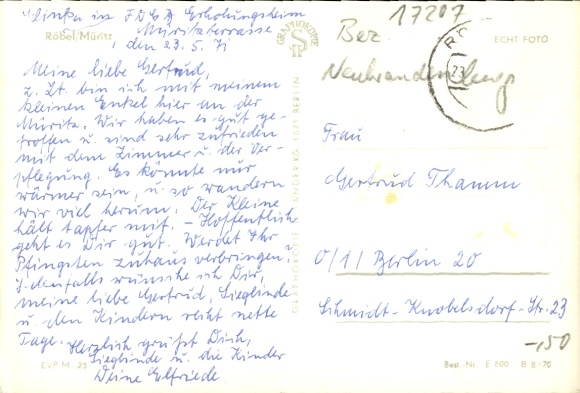 Klink in FDGB Erholungsheim
Röbel/Müritz
Müritzterrasse,
den 23.5.71
Meine liebe Gertrud,
z. Zt. bin ich mit meinem
kleinen Enkel hier an der
Müritz. Wir haben es gut ge-
troffen u. sind sehr zufrieden
mit dem Zimmer u. der Ver-
pflegung. Es könnte nur
wärmer sein, u. so wandern
wir viel herum. Der Kleine
hält tapfer mit. – Hoffentlich
geht es Dir gut. Werdet Ihr
Pfingsten zuhaus verbringen?
Jedenfalls wünsche ich Dir,
meine liebe Gertrud, Sieglinde
u. den Kindern recht nette
Tage. Herzlich grüßt Dich,
Sieglinde u. die Kinder
Deine Elfriede
EVP M -,25
GRAPHOKOPIE
1071 BERLIN
17207
Bez.
Neubrandenburg
ECHT FOTO
23
Frau
Gertrud Thamm
0/11 Berlin 20
Schmidt-Knobelsdorf-Str. 23
-,50
Best.-Nr. E 600 B 8/70